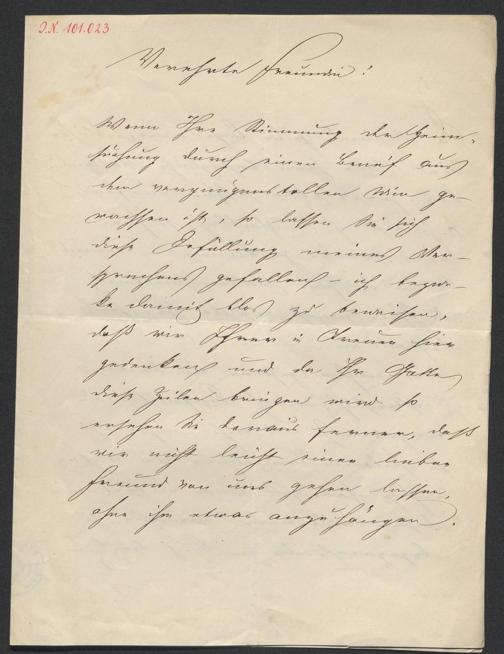 I.N. 101.023
Verehrte Freundin!
Wenn Ihre Stimmung der Heim-
suchung durch einen Brief aus
dem vergnügenstollen Wien ge-
wachsen ist, so lassen Sie sich
diese Erfüllung meines Ver-
sprechens gefallen – ich bezwe-
cke damit blos zu beweisen,
daß wir Ihrer in Treuen hier
gedenken und da Ihr Gatte
diese Zeilen bringen wird so
ersehen Sie daraus ferner, daß
wir nicht leicht einen lieben
Freund von uns gehen lassen,
ohne ihm etwas anzuhängen.